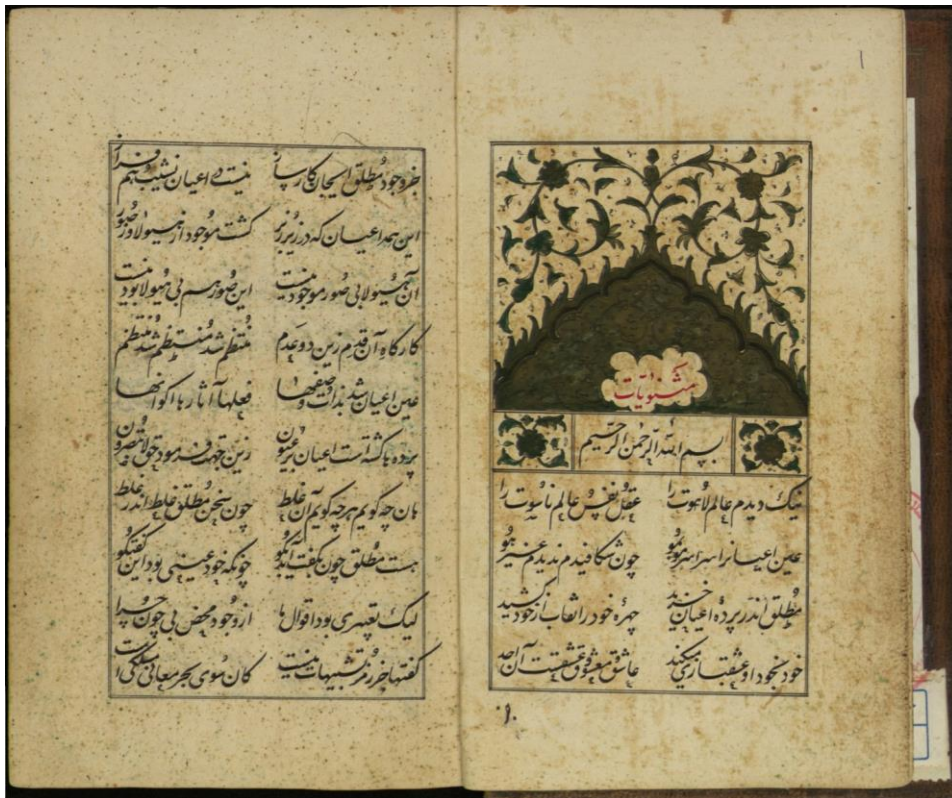 ۱
مثنویات
بسم الله الرحمن الرحیم
نیک دیدم عالم لاهوت را عقل نفس عالم ناسوت را
عین اعیانرا سراسر مو بمو چون شکافیدم ندیدم غیر هو
مطلق اندر پرده اعیان خزید چهره خود را نقاب از خود کشید
خود بخود او عشقبازی میکند عاشق و معشوق و عشقست آن احد
جز وجود مطلق ایجان کارساز نیست در اعیان نشیب و هم فراز
این همه اعیان که در زیر و زبر گشت موجود از هیولا در صور
آن هیولا بی صور موجود نیست این صور هم بی هیولا بود نیست
کارگاه آن قدم زین دو عدم منتظم شد منتظم شد منتظم
عین اعیان شد بذات و صفها فعلها آثارها اکوانها
پرده ها گشته است اعیان بر عیون زین جهت فرمود حق لا تبصرون
هان چه گویم هر چه گویم آن غلط چون سخن مطلق غلط اندر غلط
هست مطلق چون بگفت آید بگو چونکه خود عینی بود این گفتگو
لیک تعبیری بود اقوال ها از وجود محض بی چون و چرا
گفتها جز رمز تشبیهات نیست کان بسوی بحر معانی مسلکی است